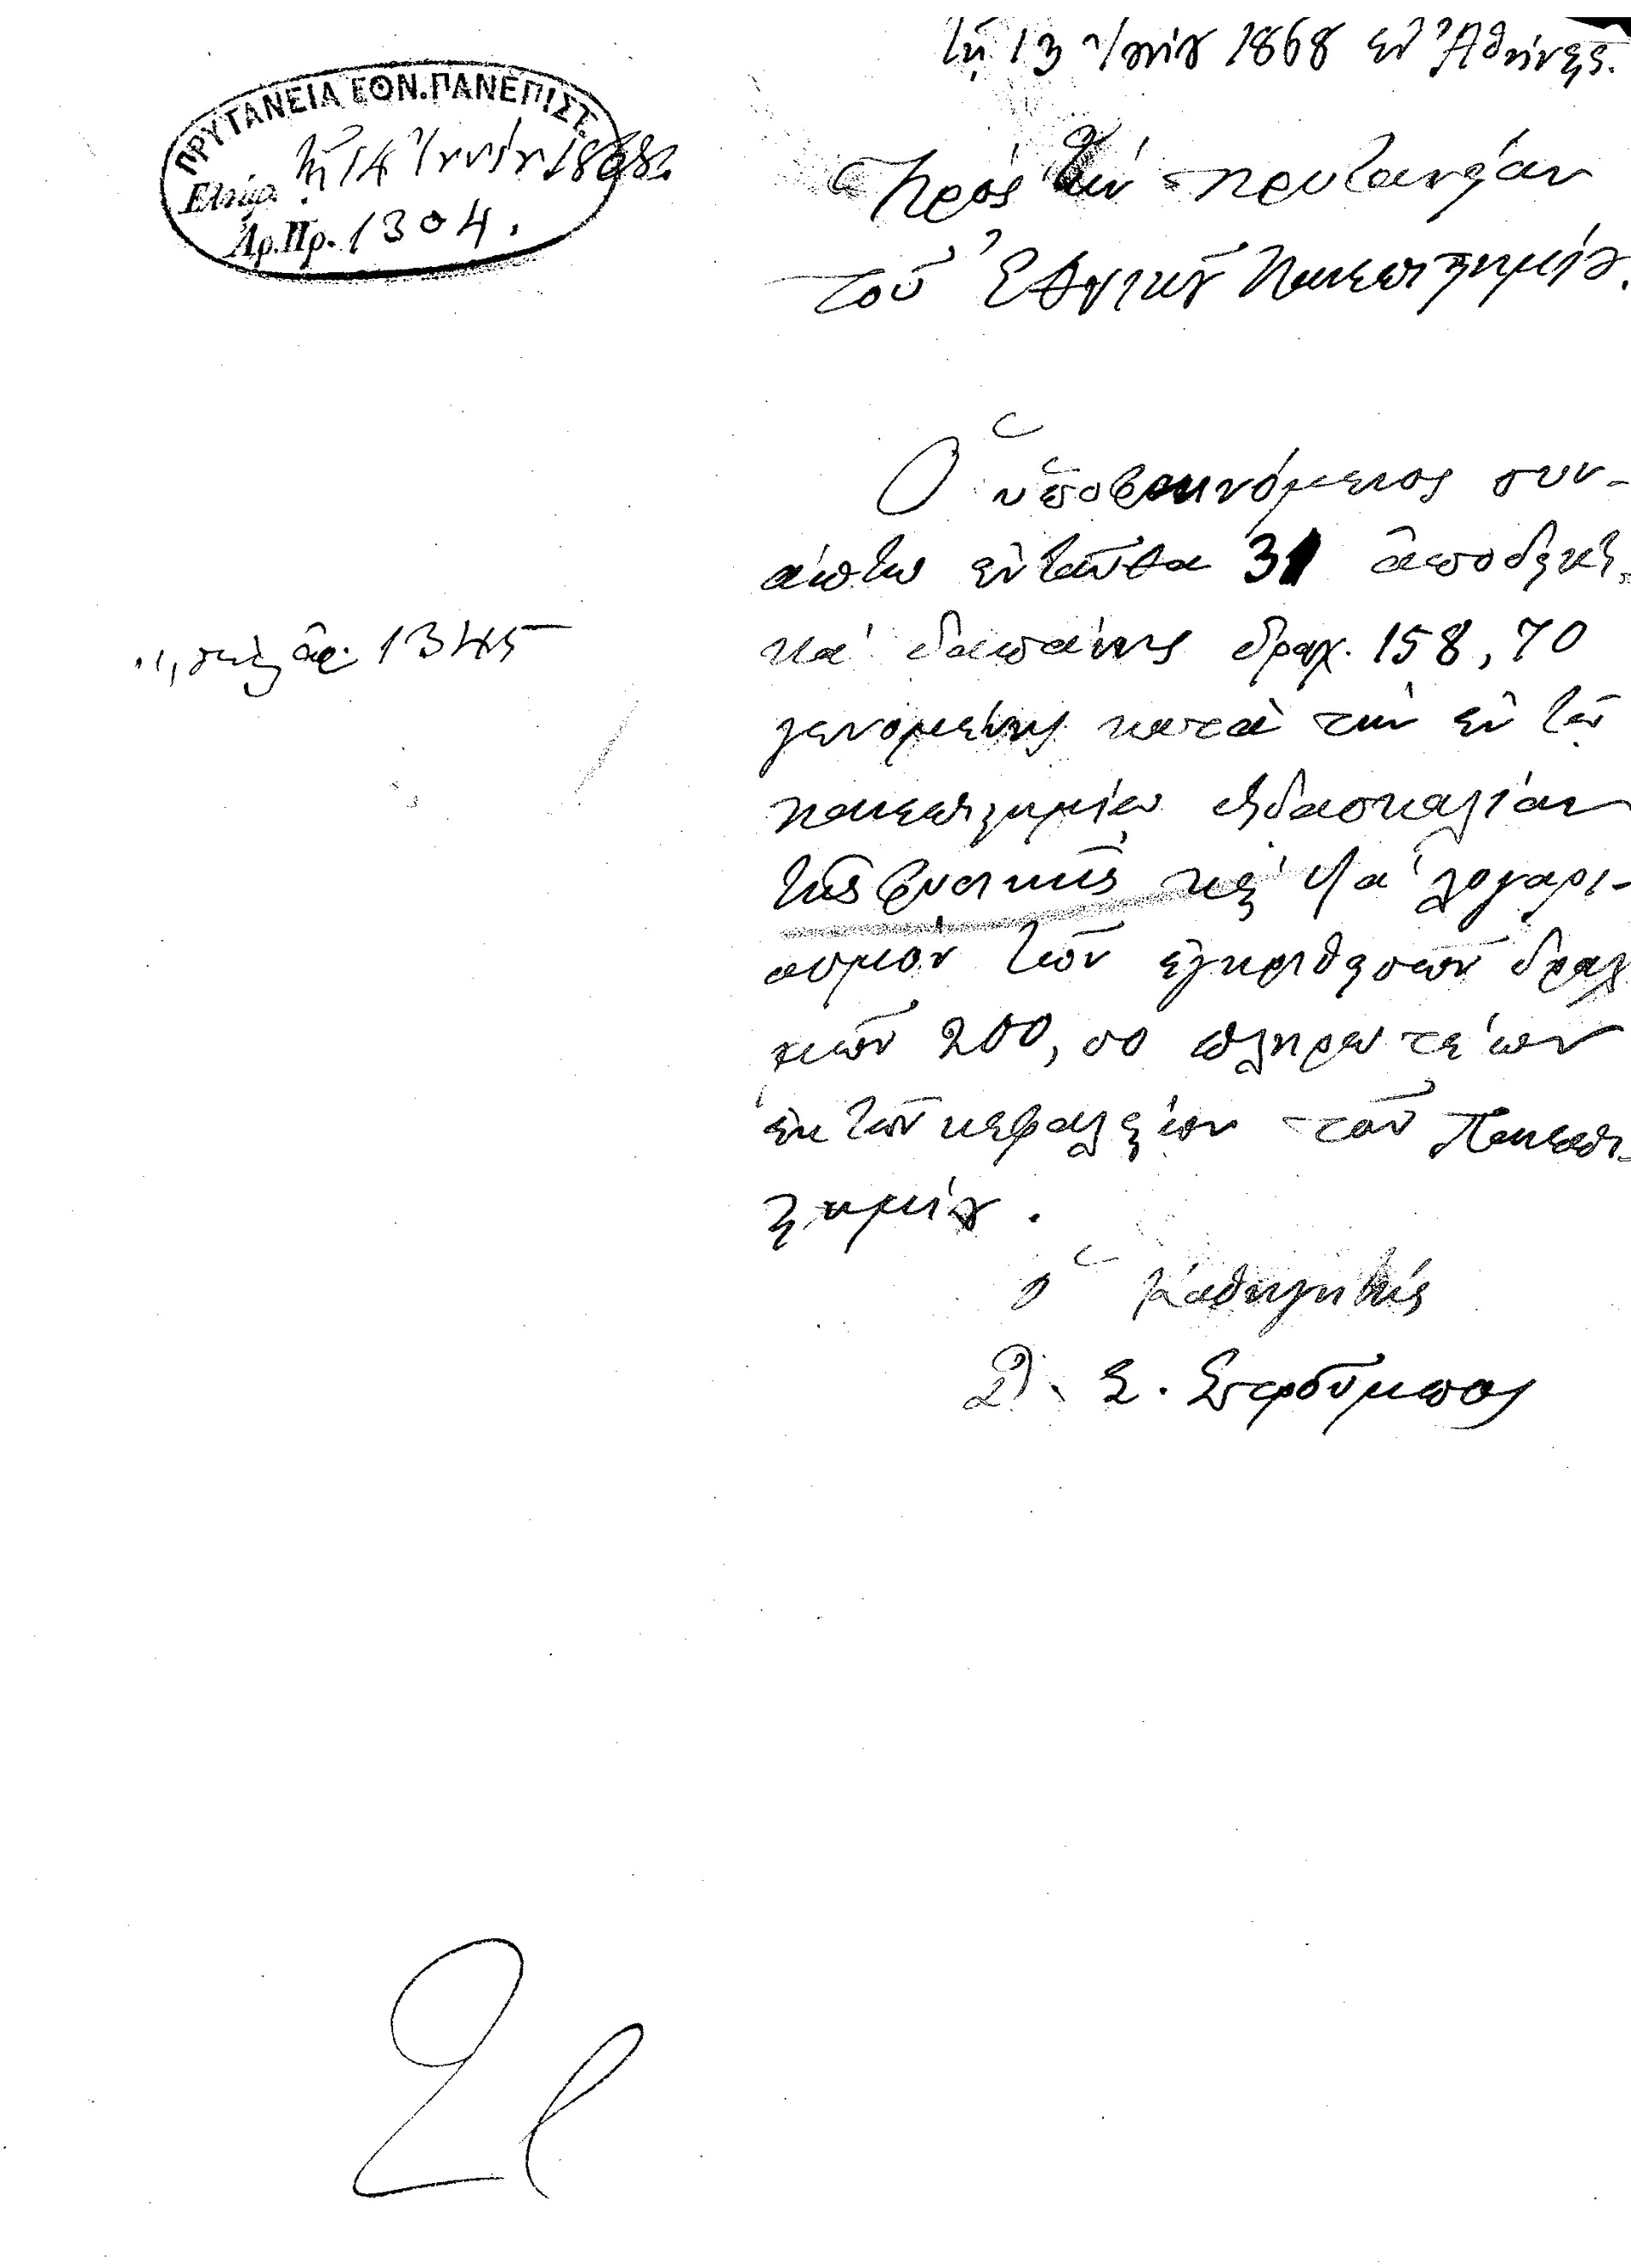 τῇ 13 Ἰουνίου 1868 ἐν Ἀθήναις.
ΠΡΥΤΑΝΕΙΑ ΕΘΝ. ΠΑΝΕΠΙΣΤ.
Ἐλήφ. τῇ 14 Ἰουνίου 1868.
Ἀρ. Πρ. 1304.
Πρὸς τὴν πρυτανείαν
τοῦ Ἐθνικοῦ Πανεπιστημίου.
Ὁ ὑποφαινόμενος συν-
άπτω ἐνταῦθα 31 ἀποδεικτι-
κὰ δαπάνης δραχ. 158,70
γενομένης κατὰ τὴν ἐν τῷ
πανεπιστημίῳ διδασκαλίαν
τῆς φυσικῆς καὶ διὰ λογαρι-
ασμὸν τῶν ἐγκριθεισῶν δραχ
μῶν 200,00 πληρωτέων
ἐκ τῶν κεφαλαίων τοῦ Πανεπι-
στημίου.
ὁ Καθηγητής
Δ. Σ. Στρούμπος
ἀρ. 1345